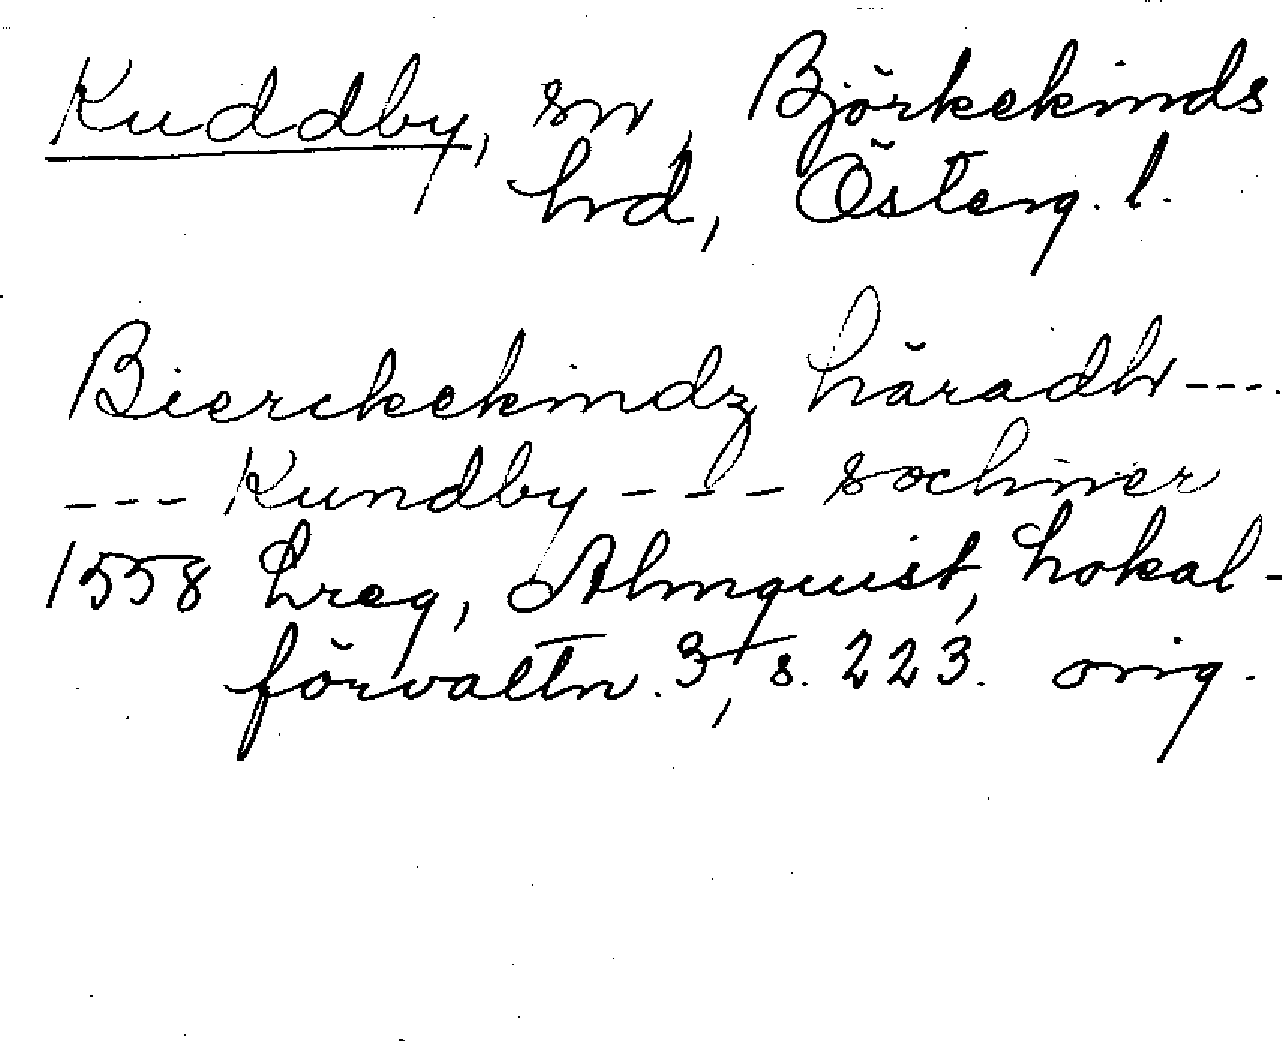 Kuddby, sn, Björkekinds
hrd, Österg. l.
Bierckekindz häradh ---.
--- Kundby --- sochner
1558 Lreg, Almquist, Lokal-
förvaltn. 3, s. 223. orig.